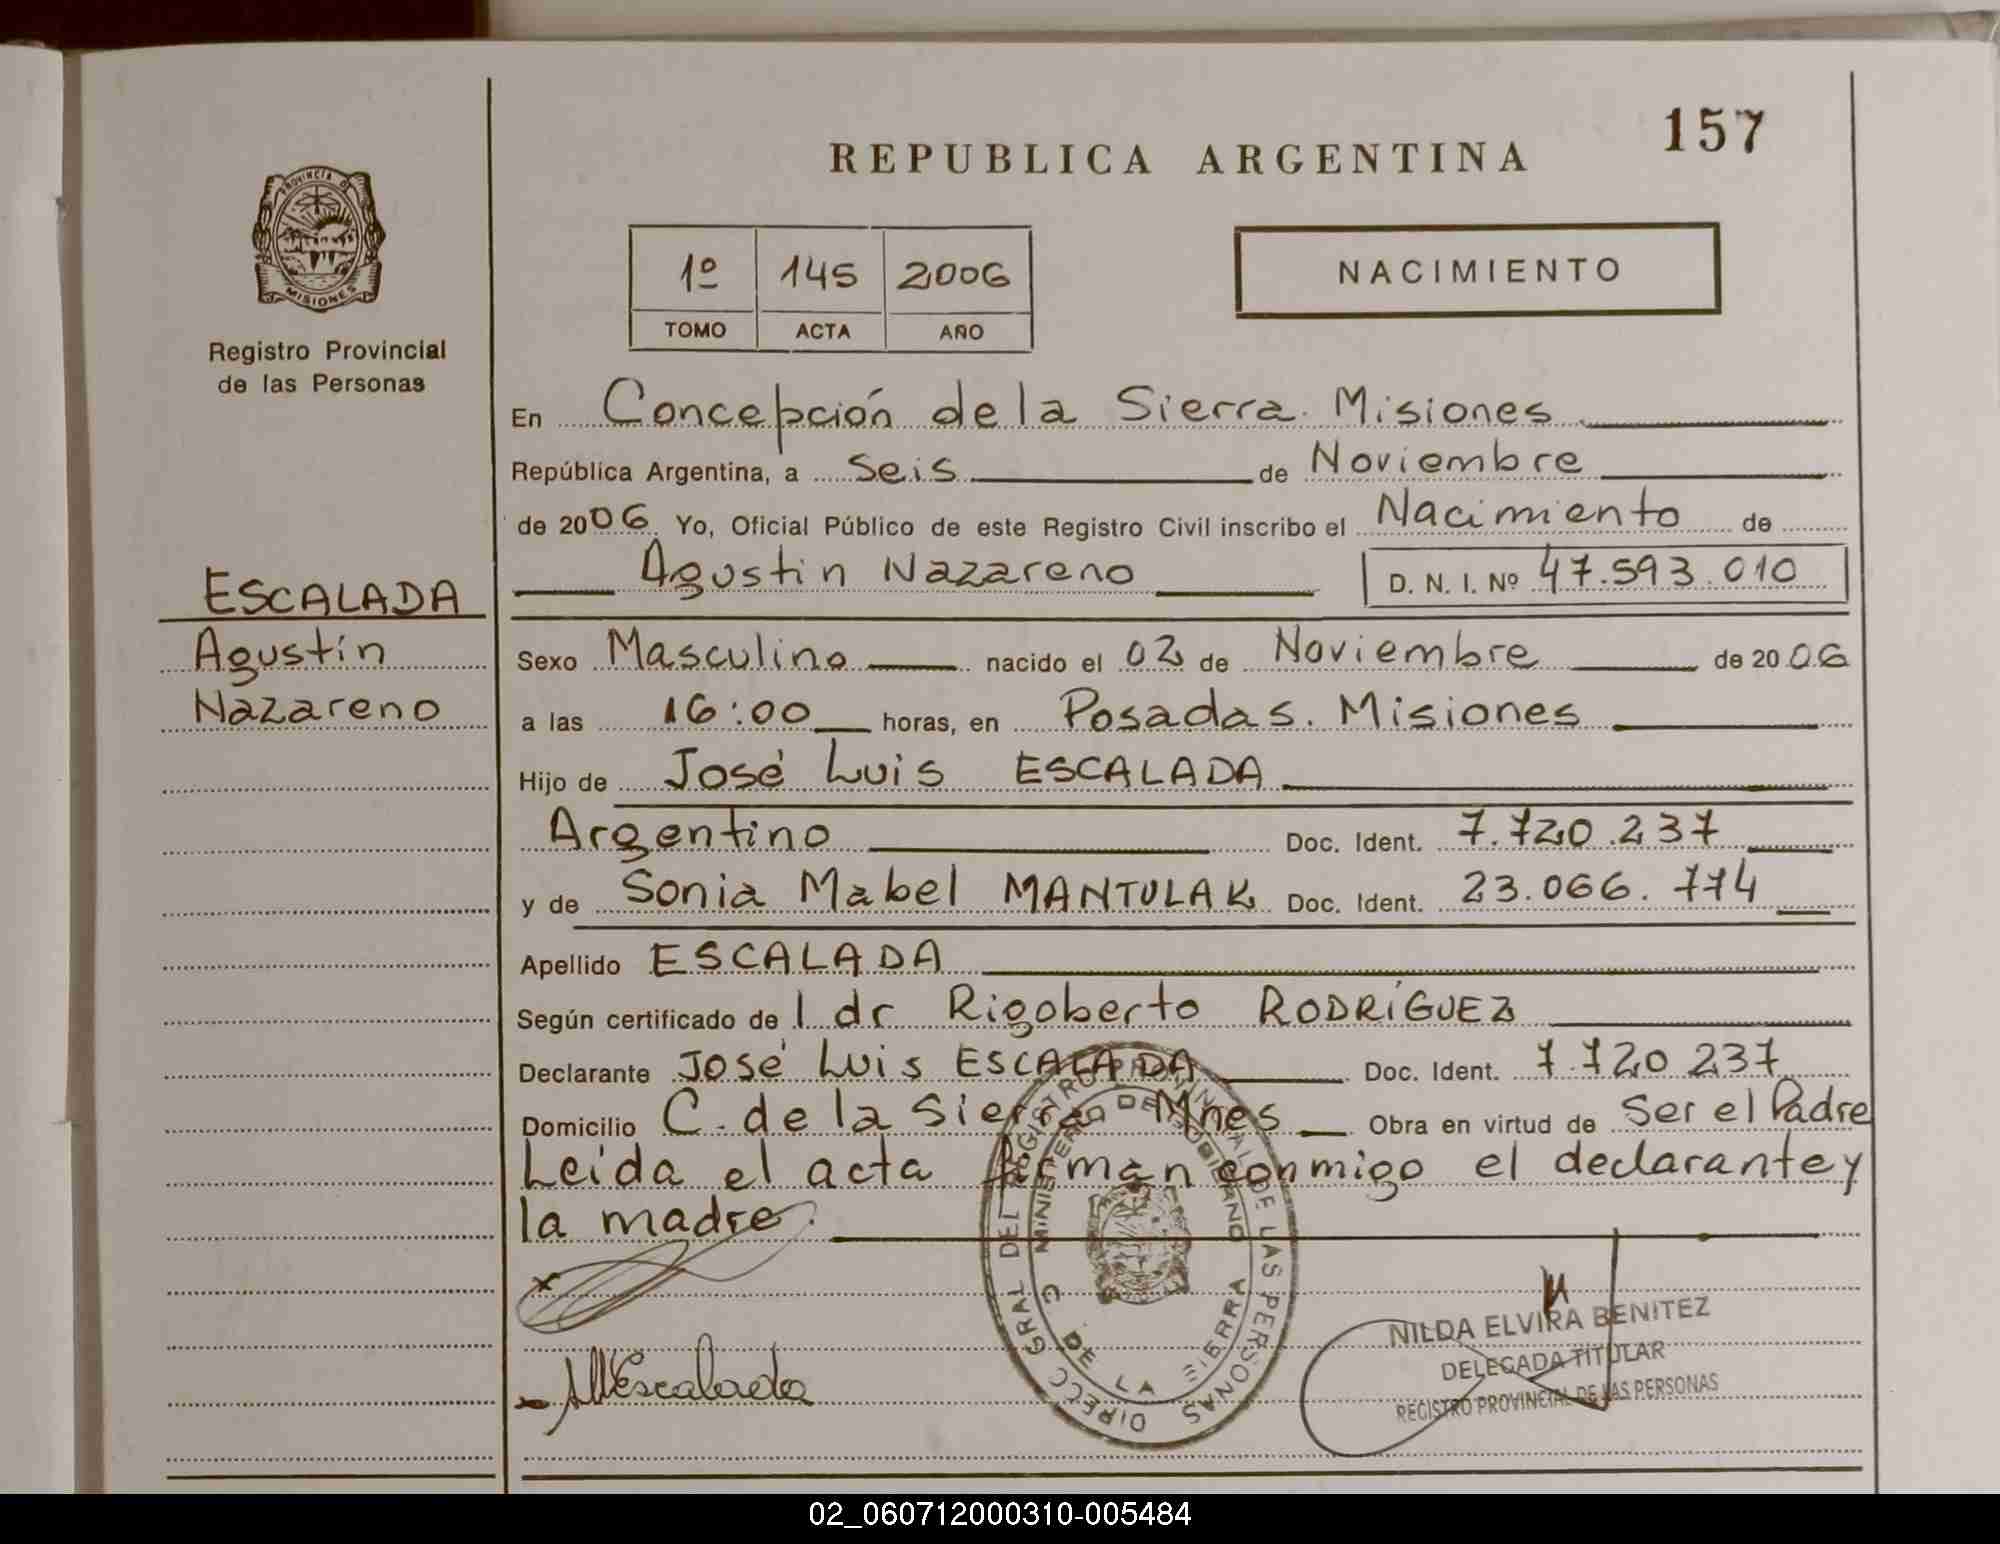 157
REPUBLICA ARGENTINA
PROVINCIA DE
MISIONES
Registro Provincial
de las Personas
1º 145 2006
TOMO ACTA AÑO
NACIMIENTO
En Concepción de la Sierra. Misiones
República Argentina, a Seis de Noviembre
de 2006 Yo, Oficial Público de este Registro Civil inscribo el Nacimiento de
Agustin Nazareno D. N. I. Nº 47.593.010
ESCALADA
Agustín
Nazareno
Sexo Masculino nacido el 02 de Noviembre de 2006
a las 16:00 horas, en Posadas. Misiones
Hijo de José Luis ESCALADA
Argentino Doc. Ident. 7.720.237
y de Sonia Mabel MANTULAK Doc. Ident. 23.066.774
Apellido ESCALADA
Según certificado de l dr Rigoberto RODRÍGUEZ
Declarante José Luis ESCALADA Doc. Ident. 7.720 237
Domicilio C. de la Sierra Mnes Obra en virtud de Ser el Padre
Leída el acta firman conmigo el declarante y
la madre.
DIRECC GRAL DEL REGISTRO PROVINCIAL DE LAS PERSONAS
MINISTERIO DE GOBIERNO
C DE LA SIERRA
x
Escalada
NILDA ELVIRA BENITEZ
DELEGADA TITULAR
REGISTRO PROVINCIAL DE LAS PERSONAS
02_060712000310-005484